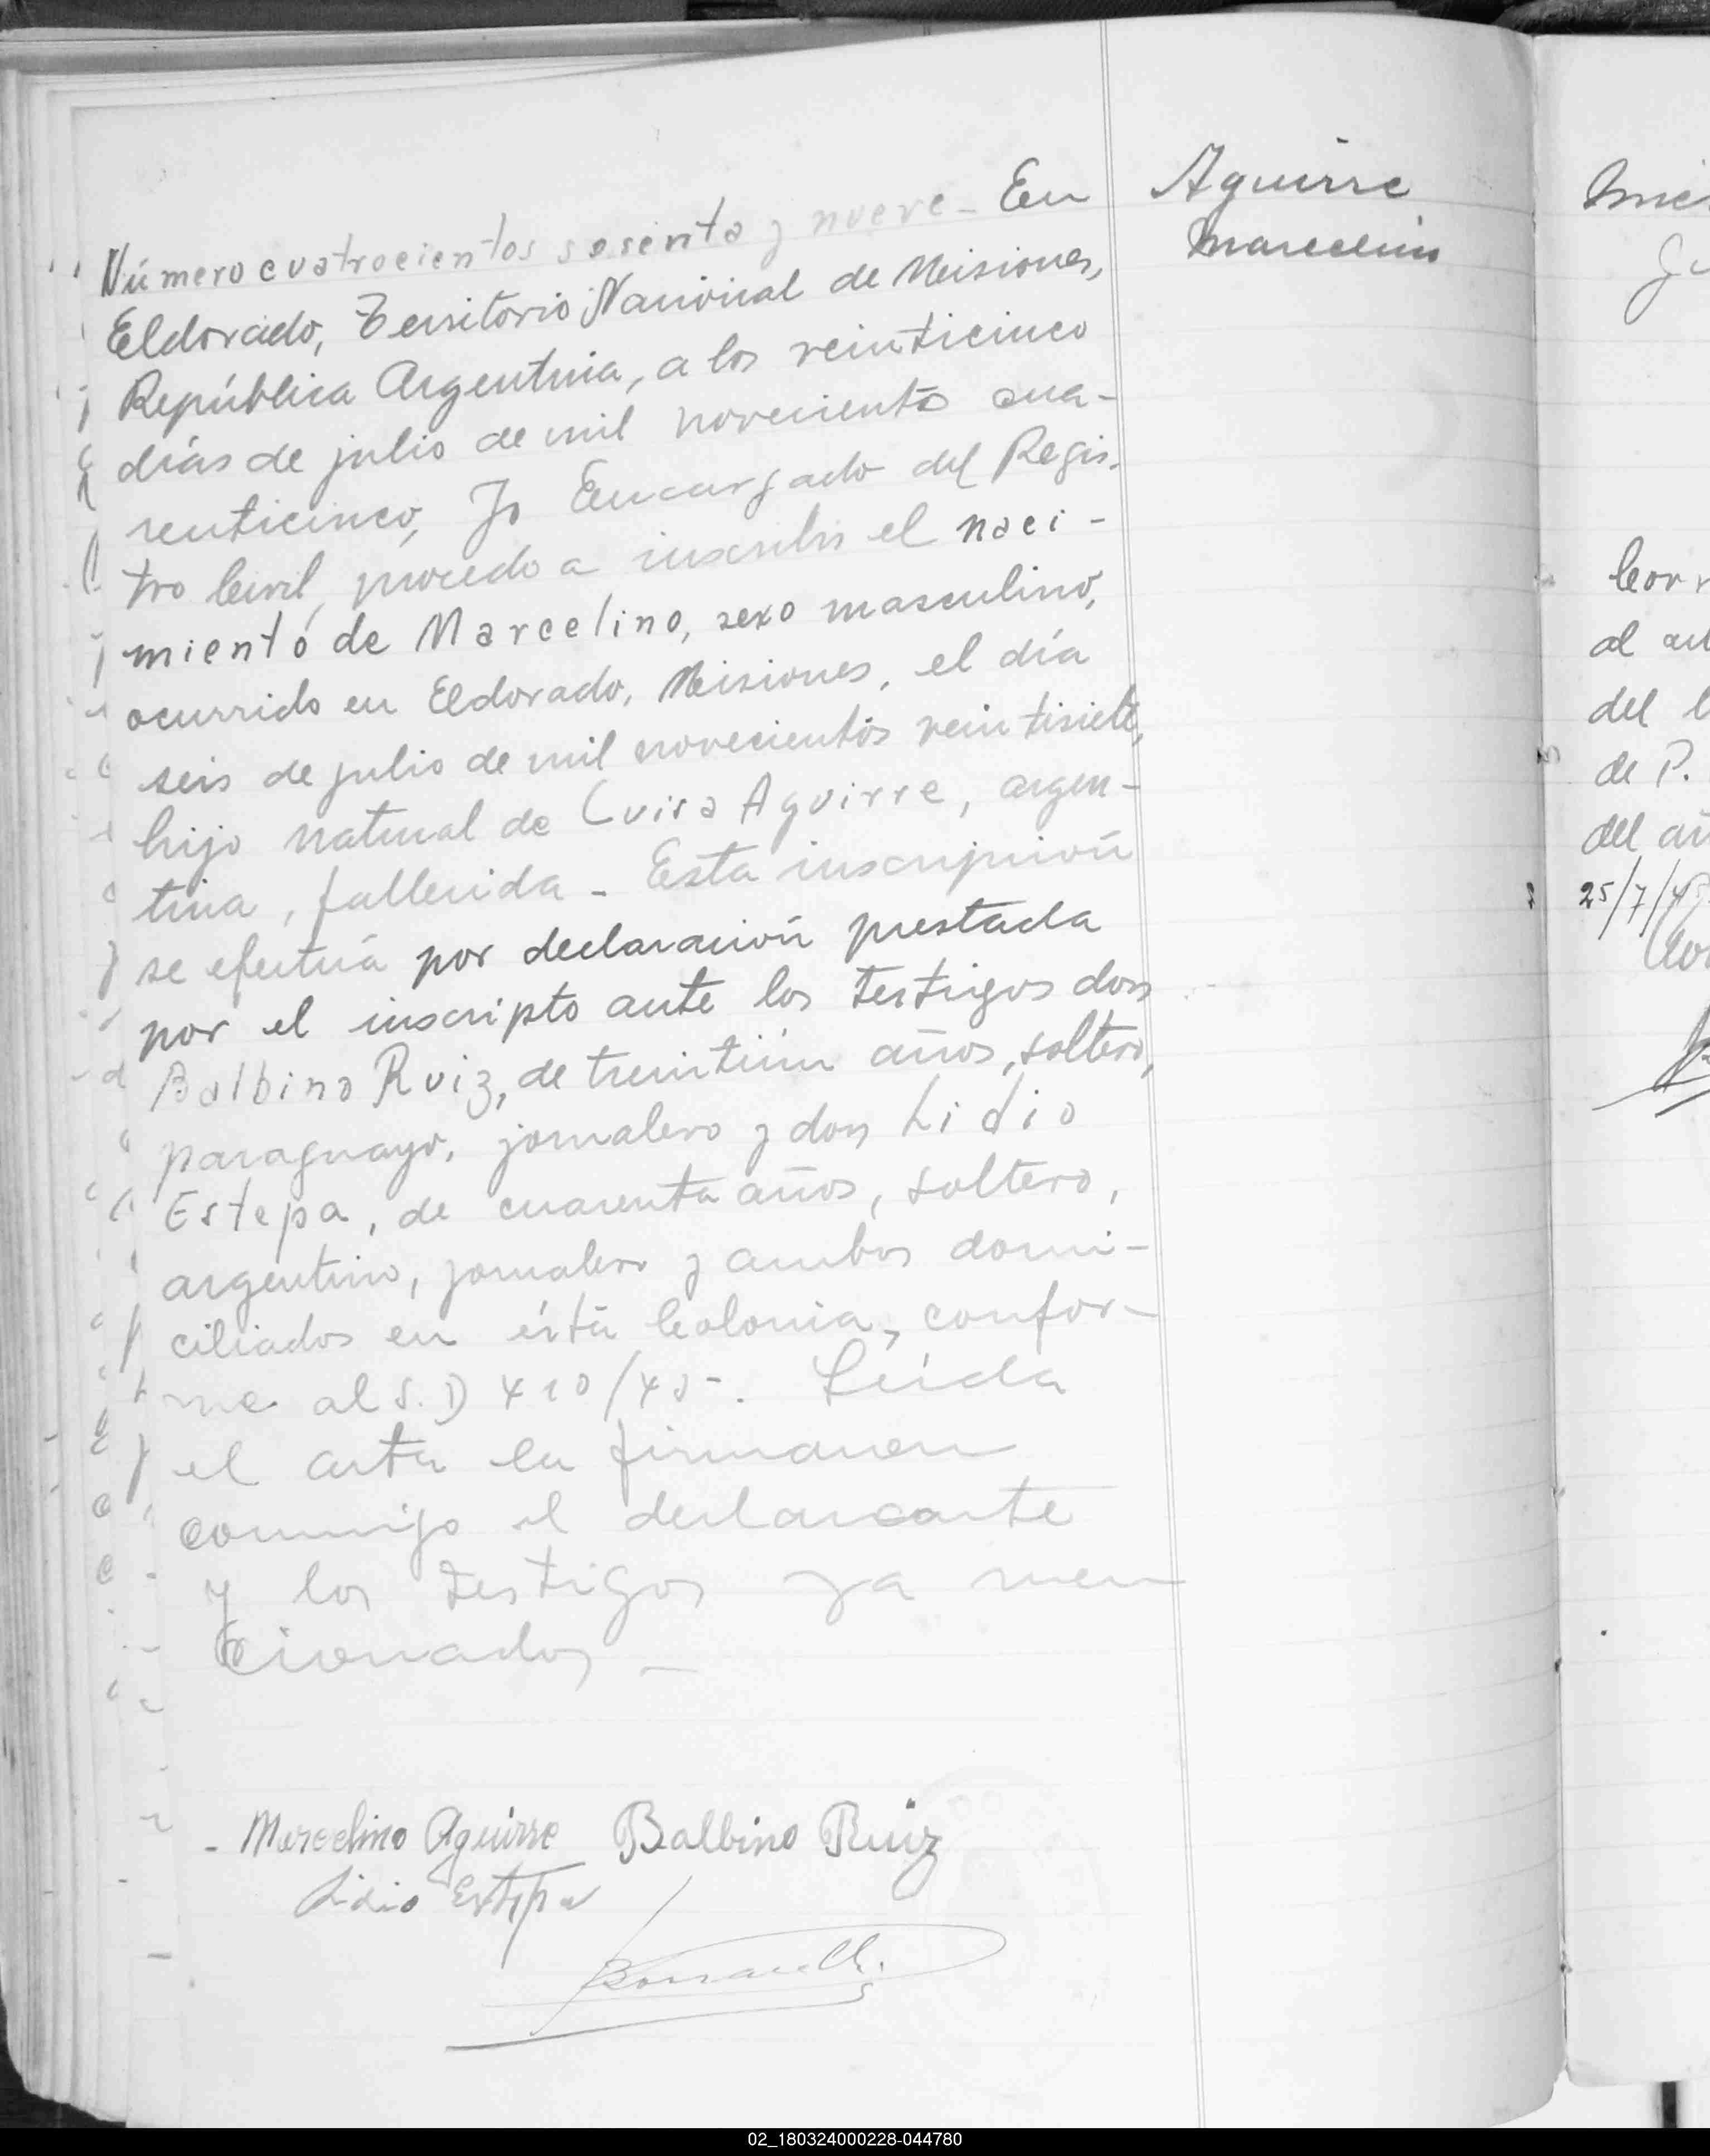 Número cuatrocientos sesenta y nueve - En
Eldorado, Territorio Nacional de Misiones,
República Argentina, a los veinticinco
días de julio de mil noveciento cua-
renticinco, Yo Encargado del Regis-
tro Civil, procedo a inscribir el naci-
miento de Marcelino, sexo masculino,
ocurrido en Eldorado, Misiones, el día
seis de julio de mil novecientos veintisiete,
hijo natural de Luisa Aguirre, argen-
tina, fallecida - Esta inscripción
se efectúa por declaración prestada
por el inscripto ante los testigos don
Balbino Ruiz, de treintiún años, soltero,
paraguayo, jornalero y don Lidio
Estepa, de cuarenta años, soltero,
argentino, jornalero y ambos domi-
ciliados en ésta Colonia, confor-
me al S.D 410/45-. Leída
el acta la firmaron
conmigo el declarante
y los testigos ya men
cionados -
Aguirre
Marcelino
- Marcelino Aguirre Balbino Ruiz
Lidio Estepa
al
del
de P.
25/7/45
02_180324000228-044780